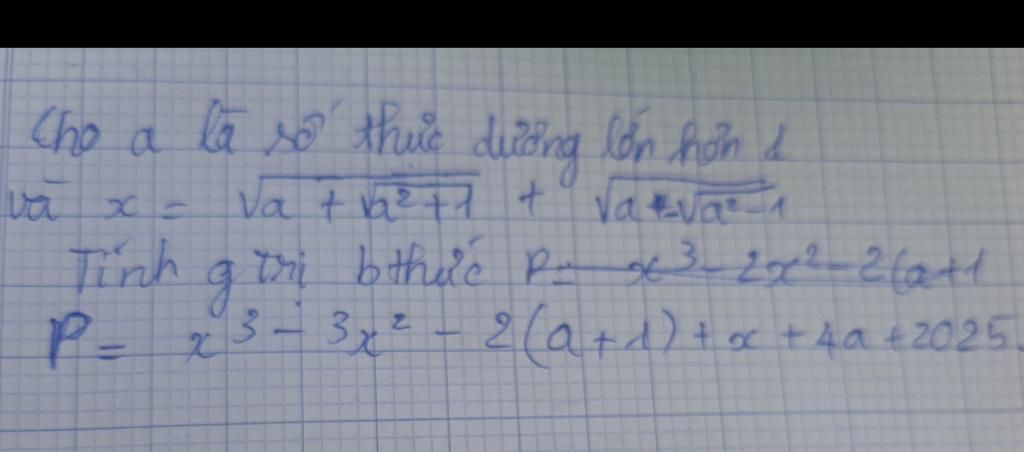 Cho a là số thực dương lớn hơn 1
và x = √(a + √(a² + 1)) + √(a - √(a² - 1))
Tính g trị b thức P = x³ - 2x² - 2(a+1
P = x³ - 3x² - 2(a+1) + x + 4a + 2025.